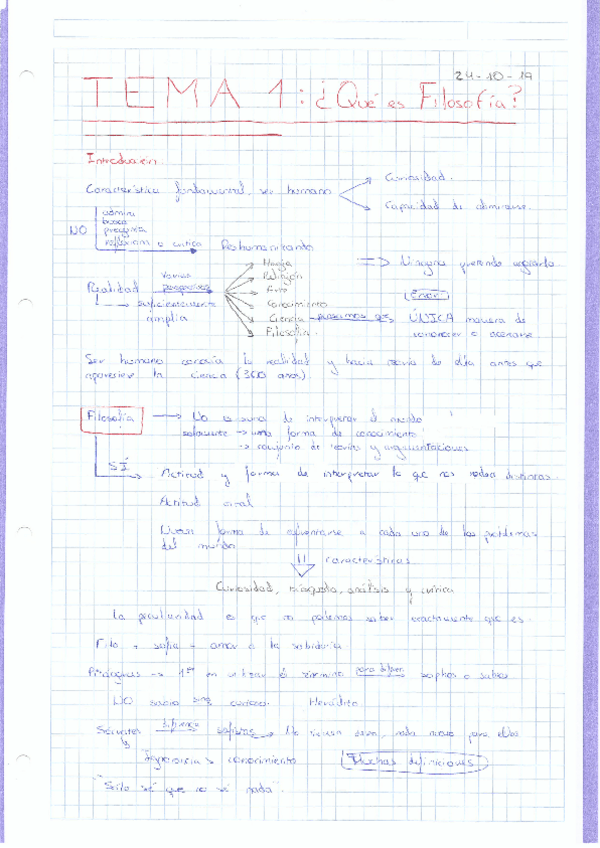 24-10-19
TEMA 1: ¿Qué es Filosofía?
Introducción.
Característica fundamental ser humano
Curiosidad.
Capacidad de admirarse.
NO
admira
busca
pregunta
reflexiona o critica
Deshumanizando
Magia
Religión
Arte
Conocimiento
Ciencia
Filosofía
Realidad
Varias
perspectivas
suficientemente
amplia
Ninguna
Error
pensamos es
ÚNICA manera de
conocer o acercarse
Ser humano conocía la realidad y hacía teoría de ella antes que
apareciese la ciencia (300 años)
Filosofía
No es una de interpretar el mundo
solamente → una forma de conocimiento
→ conjunto de teorías y argumentaciones
SÍ
Actitud y formas de interpretar lo que nos rodea distintas.
Actitud
forma de enfrentarse a cada uno de los problemas
del mundo
características
Curiosidad, búsqueda, análisis y crítica
La peculiaridad es que no podemos saber exactamente que es.
Filo + sofia = amor a la sabiduría
Pitágoras → 1º en utilizar el término para definir sophos o sabio
NO sabio sino curioso. Heráclito
Sócrates diferencia sofistas → No tienen nada nuevo para ellos
Ignorancia > conocimiento
Muchas definiciones
"Sólo sé que no sé nada".